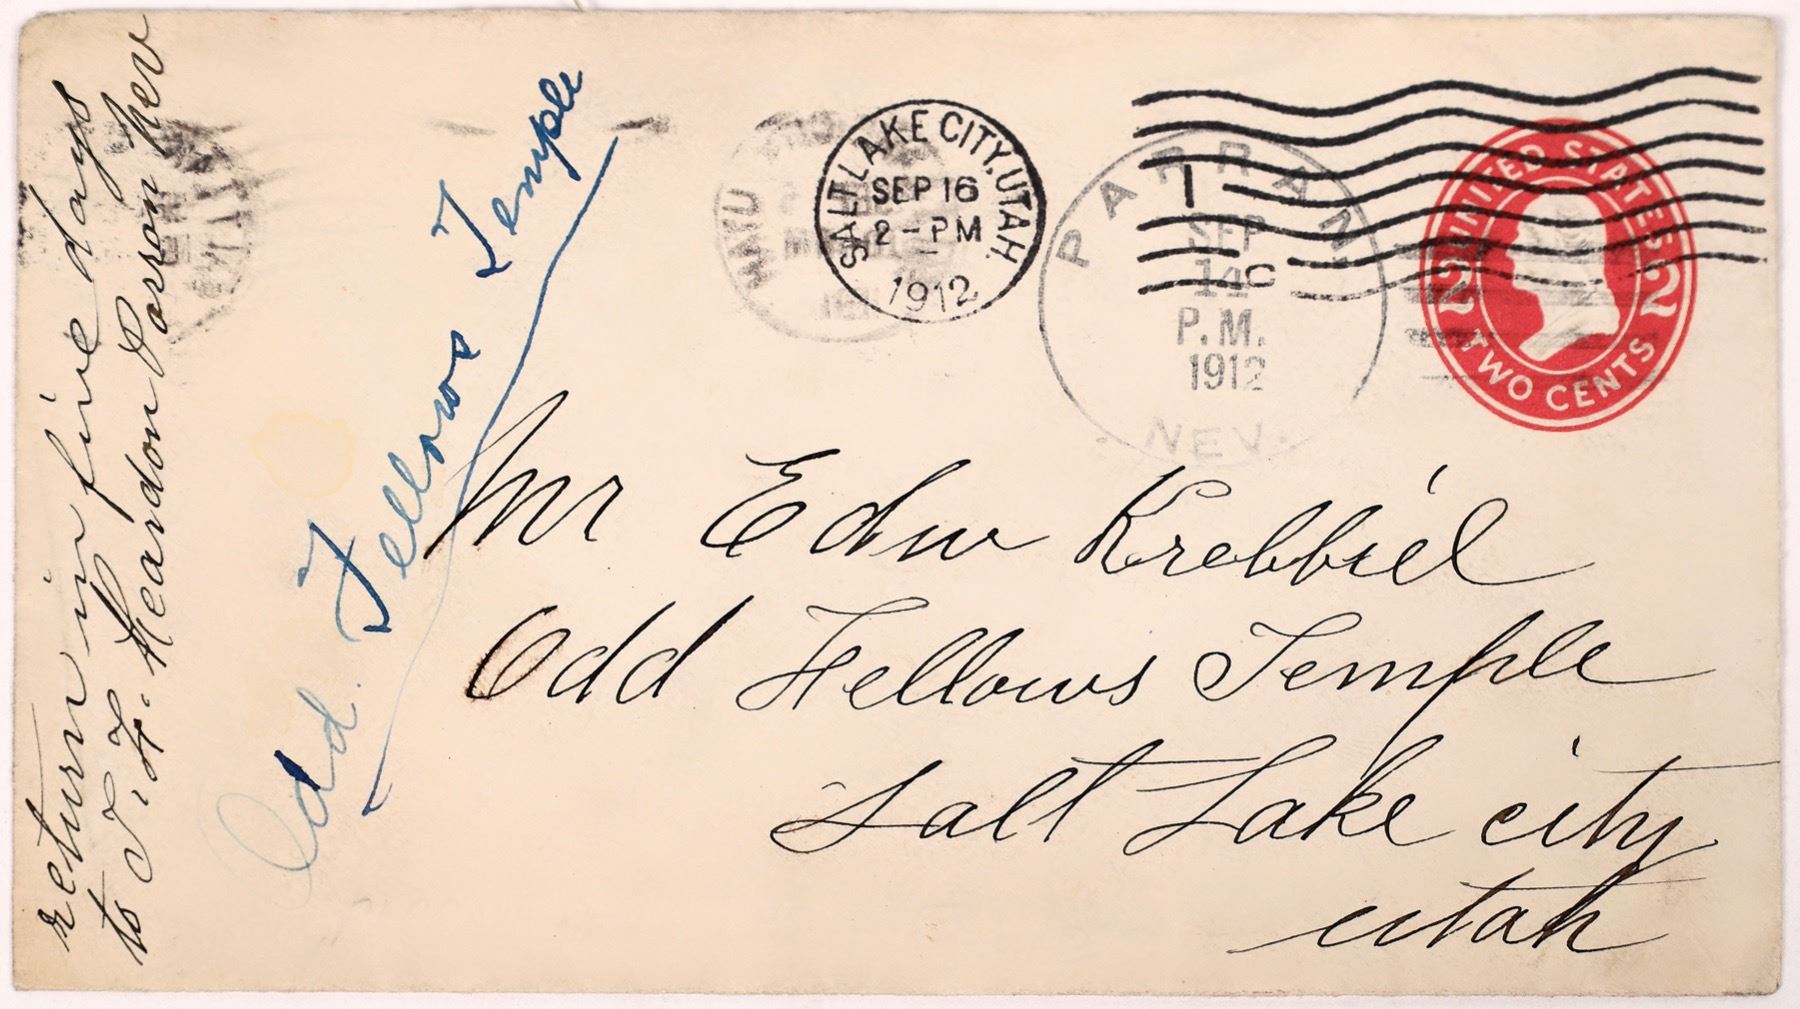 return in five days
to T. H. Meardon Parron Nev
Odd. Fellows Temple
SALT LAKE CITY, UTAH.
SEP 16
2-PM
1912
PARRAN
SEP
14
P.M.
1912
NEV.
UNITED STATES
2 2
TWO CENTS
Mr Edw Krebbiel
Odd Fellows Temple
Salt Lake city
utah